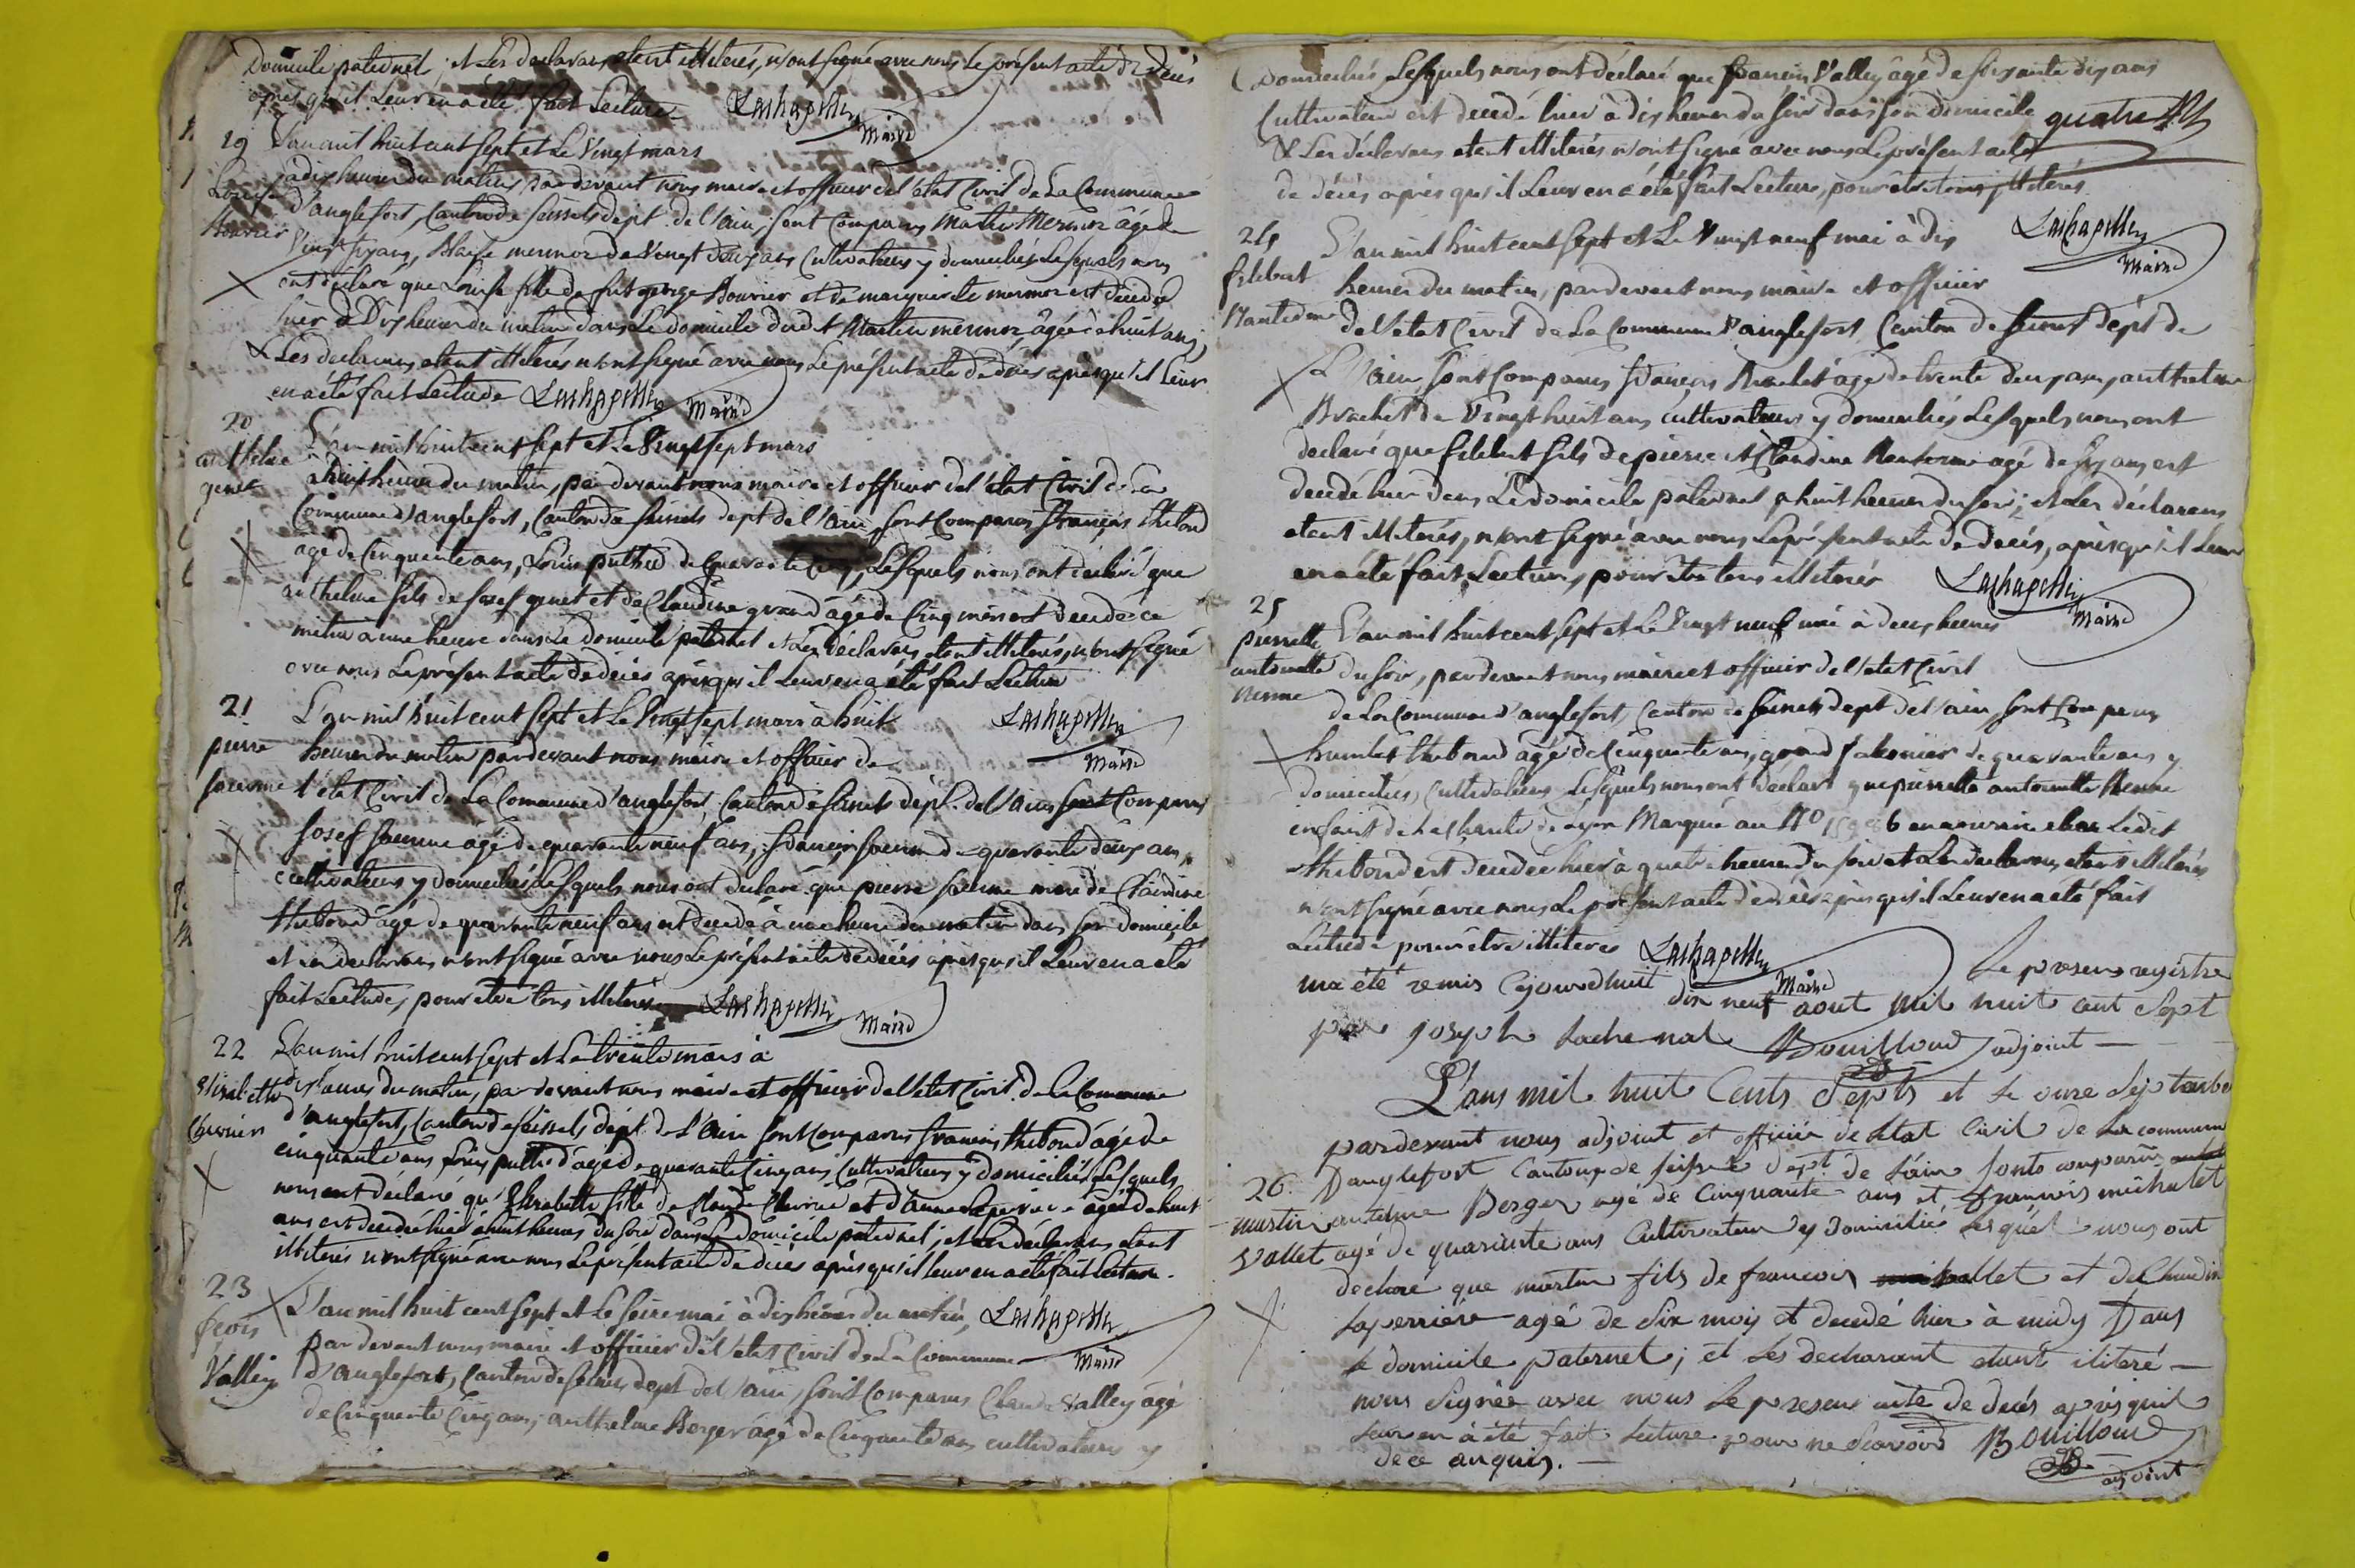 Domicile paternel; et Les declarans etant illiterés, n'ont signé avec nous Le présent acte de décès
après qu'il Leur en a été fait Lecture Lachapelle Maire
19 L'an mil huit cent sept et Le Vingt mars
à dix heures du matin par devant nous maire et officier de l'état Civil de La Commune
Louise d'anglefort, Canton de seissel dept. de l'ain, sont Comparus Martin Mermoz âgé de
Bouvier Vingt six ans, mermoz de Vingt deux ans Cultivateurs y domiciliés Lesquels nous
ont déclaré que Louise fille de fut george Bouvier et de marguerite mermoz est décédée
hier à Dix heures du matin dans Le domicile dudt Martin mermoz, âgée de huit ans,
& Les declarans etant illiterés n'ont signé avec nous Le présent acte de décès après qu'il Leur
en a été fait Lecture Lachapelle Maire
20 L'an mil huit cent sept et Le Vingt sept mars
anthelme à huit heures du matin, par devant nous maire et officier de l'état Civil de La
genet Commune d'anglefort, Canton de seissel dept de l'ain, sont Comparus François thibond
âgé de Cinquante ans, Louis puthod de quarante Cinq, Lesquels nous ont déclaré que
anthelme fils de Josef genet et de Claudine grand âgé de Cinq mois est décédé ce
matin à une heure dans Le domicile paternel et Les déclarans etant illiterés, n'ont signé
avec nous Le présent acte de décès après qu'il Leur en a été fait Lecture
21 L'an mil huit cent sept et Le Vingt sept mars à huit Lachapelle
pierre heures du matin par devant nous maire et officier de Maire
l'état Civil de La Commune d'anglefort, Canton de seissel dept. de l'ain sont Comparus
Josef âgé de quarante neuf ans, françois de quarante deux ans,
cultivateurs y domiciliés Lesquels nous ont déclaré que pierre mari de Claudine
thibond âgé de quarante neuf ans est décédé à une heure du matin dans son domicile
et Les declarans n'ont signé avec nous Le présent acte de décès après qu'il Leur en a été
fait Lecture, pour etre tous illiterés Lachapelle Maire
22 L'an mil huit cent sept et Le trente mars à
Elisabeth dix heures du matin, par devant nous maire et officier de l'état Civil de La Commune
Chevrier d'anglefort, Canton de seissels dept de l'Ain sont Comparus françois thibond âgé de
cinquante ans, Louis puthod âgé de quarante Cinq ans, Cultivateurs y domiciliés Lesquels
nous ont déclaré qu'Elisabeth fille de Claude Chevrier et d'anne Laperrière âgée de huit
ans est décédée hier à huit heures du soir dans Le domicile paternel; et Les déclarans etant
illiterés n'ont signé avec nous Le présent acte de décès après qu'il leur en a été fait Lecture.
23 L'an mil huit cent sept et Le seize mai à dix heures du matin, Lachapelle
fçois par devant nous maire et officier de l'état Civil de La Commune Maire
Valley d'anglefort, Canton de seissel dept de l'ain, sont Comparus Claude Valley âgé
de Cinquante Cinq ans, anthelme Berger âgé de Cinquante ans cultivateurs y
Domiciliés Lesquels nous ont déclaré que françois Valley âgé de soixante dix ans
Cultivateur est décédé hier à dix heures du soir dans son domicile quatre
& Les déclarans etant illiterés n'ont signé avec nous Le présent acte
de décès après qu'il Leur en a été fait Lecture, pour etre tous illiterés
24 L'an mil huit cent sept et Le Vingt neuf mai à dix Lachapelle
filibert heures du matin, par devant nous maire et officier Maire
de l'état Civil de La Commune d'anglefort, Canton de seissel dept de
L'ain sont Comparus françois Brachet âgé de trente deux ans, anthelme
Brachet de Vingt huit ans cultivateurs y domiciliés Lesquels nous ont
déclaré que filibert fils de pierre et Claudine âgé de six ans est
décédé hier dans Le domicile paternel à huit heures du soir; et Les déclarans
etant illiterés, n'ont signé avec nous Le présent acte de décès, après qu'il Leur
en a été fait Lecture, pour etre tous illiterés Lachapelle
25 Maire
pierrette L'an mil huit cent sept et Le Vingt neuf mai à deux heures
antoinette du soir, par devant nous maire et officier de l'état Civil
de La Commune d'anglefort, Canton de seissel dept de l'ain, sont Comparus
thibond âgé de Cinquante ans, grand de quarante ans y
domiciliés, Cultivateurs Lesquels nous ont déclaré que pierrette antoinette
enfant de La charité de Lyon Marquée au No en nourrice chez Ledit
thibond est décédée hier à quatre heures du soir et Les declarans etant illiterés
n'ont signé avec nous Le présent acte de décès après qu'il Leur en a été fait
Lecture pour être illiterés Lachapelle Maire
Le present registre
ma été remis Cejourdhuit dix neuf aout Mil huit cent Sept
par joseph Lachenal Bouilloud adjoint
L'ans mil huit Cents Septs et le onze Septembre
pardevant nous adjoint et officier de letat Civil de La commune
Danglefort Canton de seissel dept de l'ain sonts comparus
26. antelme Berger agé de Cinquante ans et françois michalet
martin
Vallet agé de quarante ans Cultivateur y Domicilié lesquel nous ont
declaré que martin fils de francois vallet et de Claudin
Laperriere agé de Six mois et decedé hier à midy Dans
le domicile paternel; et les declarant etant iliteré
nous Signée avec nous le present acte de decés après quil
leur en à été fait Lecture pour ne Scavoir Bouilloud
de ce anquis. adjoint